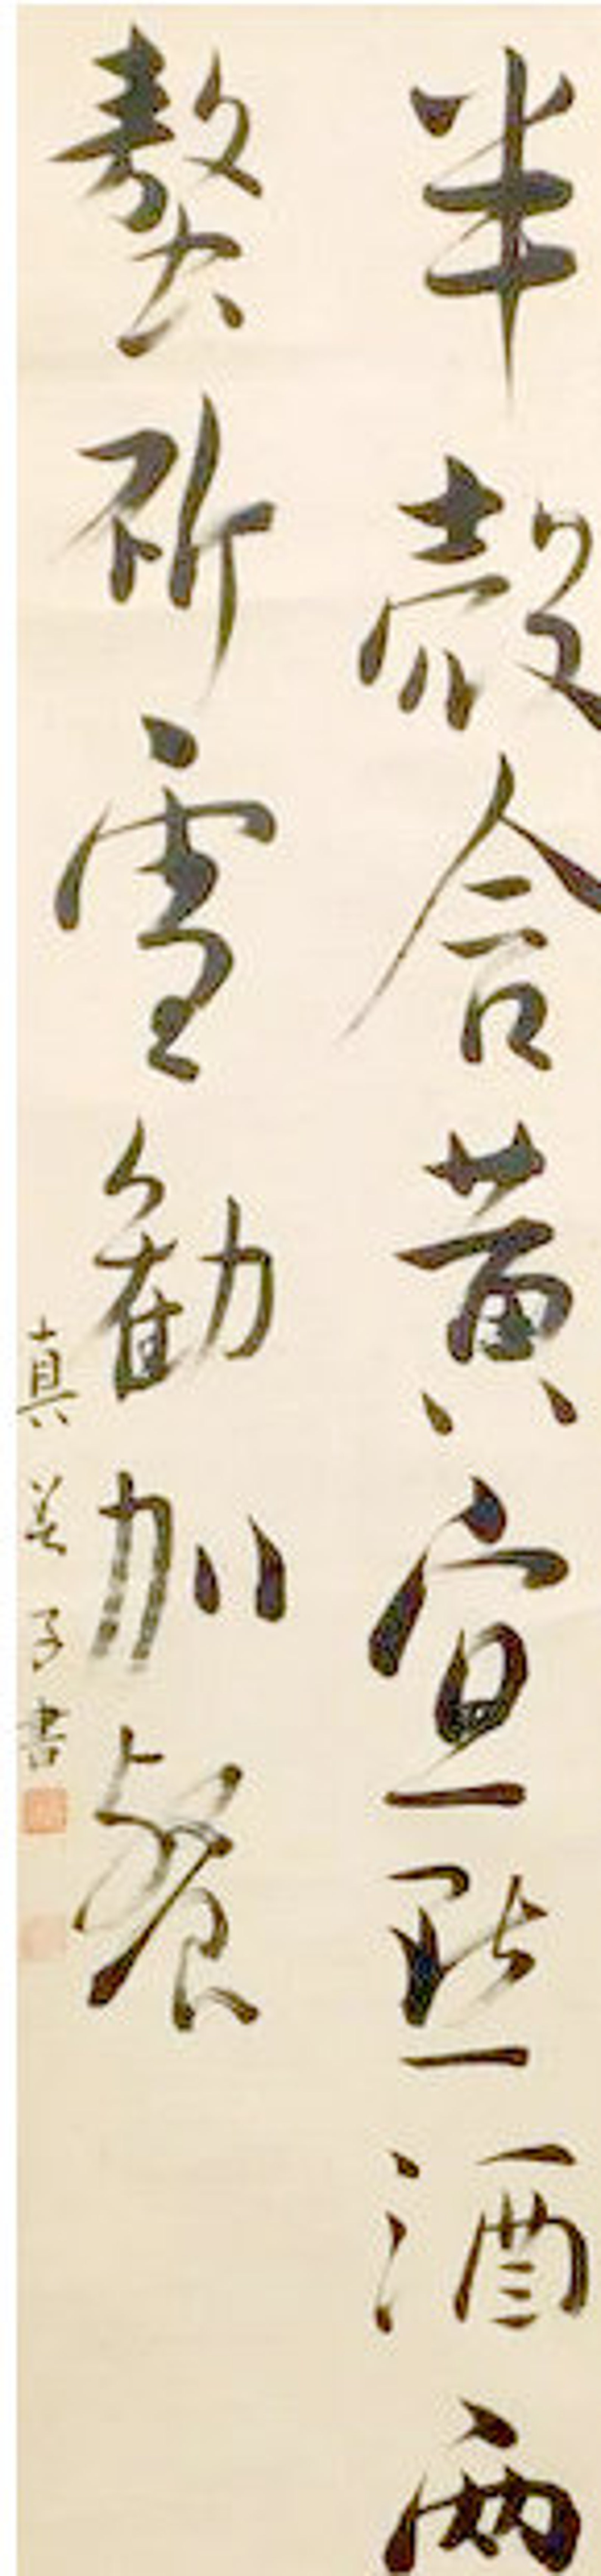 半殼含黃宜點酒兩
螯斫雪勸加餐
真美子書